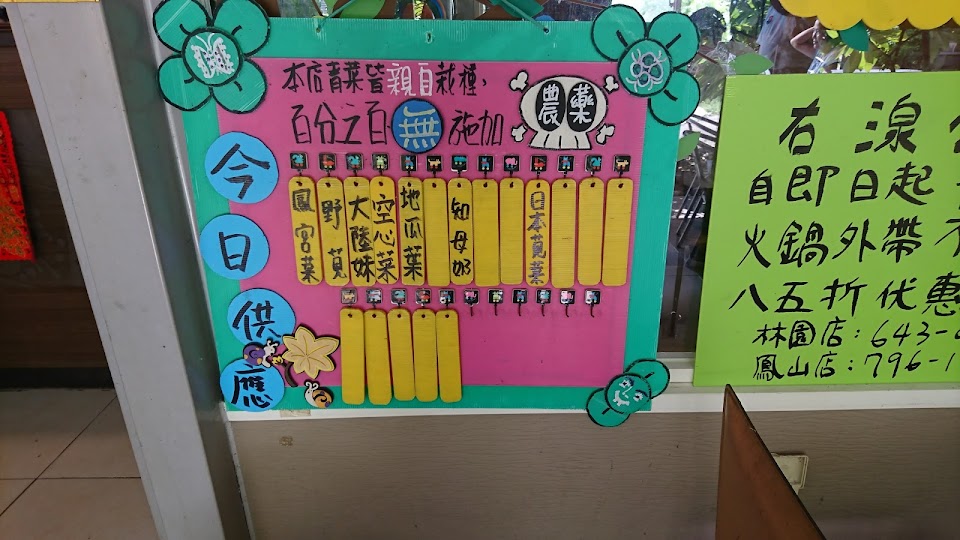 本店青菜皆親自栽種，
百分之百無施加農藥
今日供應
鳳宮菜
野莧
大陸妹
空心菜
地瓜葉
知母奶
日本莧菜
右湶
自即日起
火鍋外帶
八五折优惠
林園店：643-
鳳山店：796-1